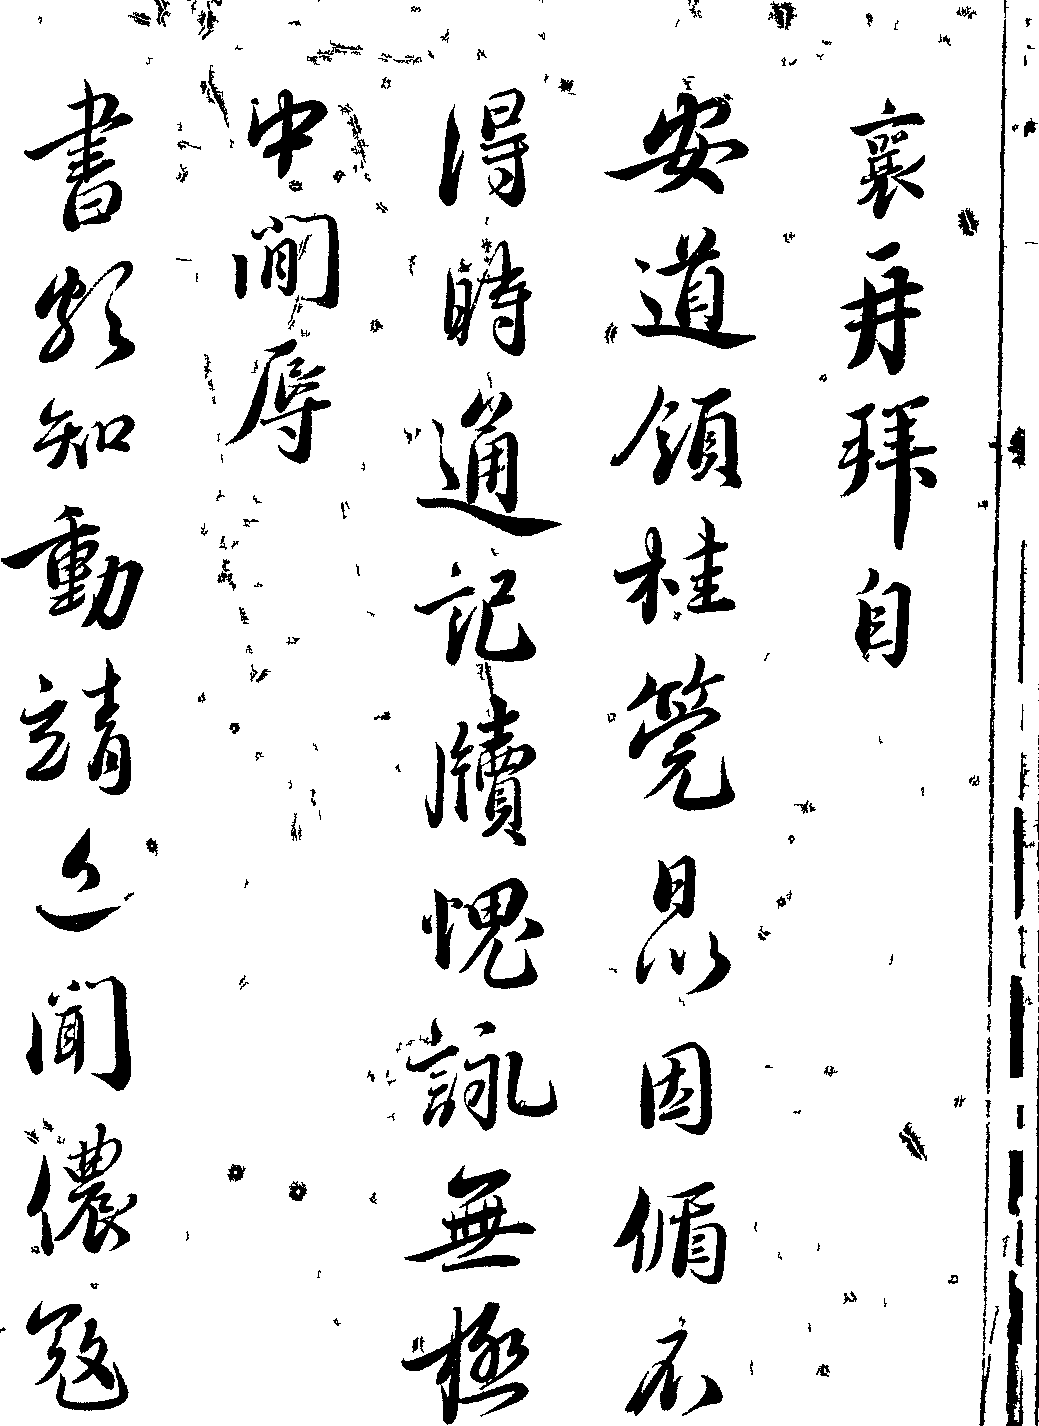 襄再拜自
安道領桂筦昆因循不
得時通記牘愧詠無極
中間辱
書頗知動靖近聞儂寇